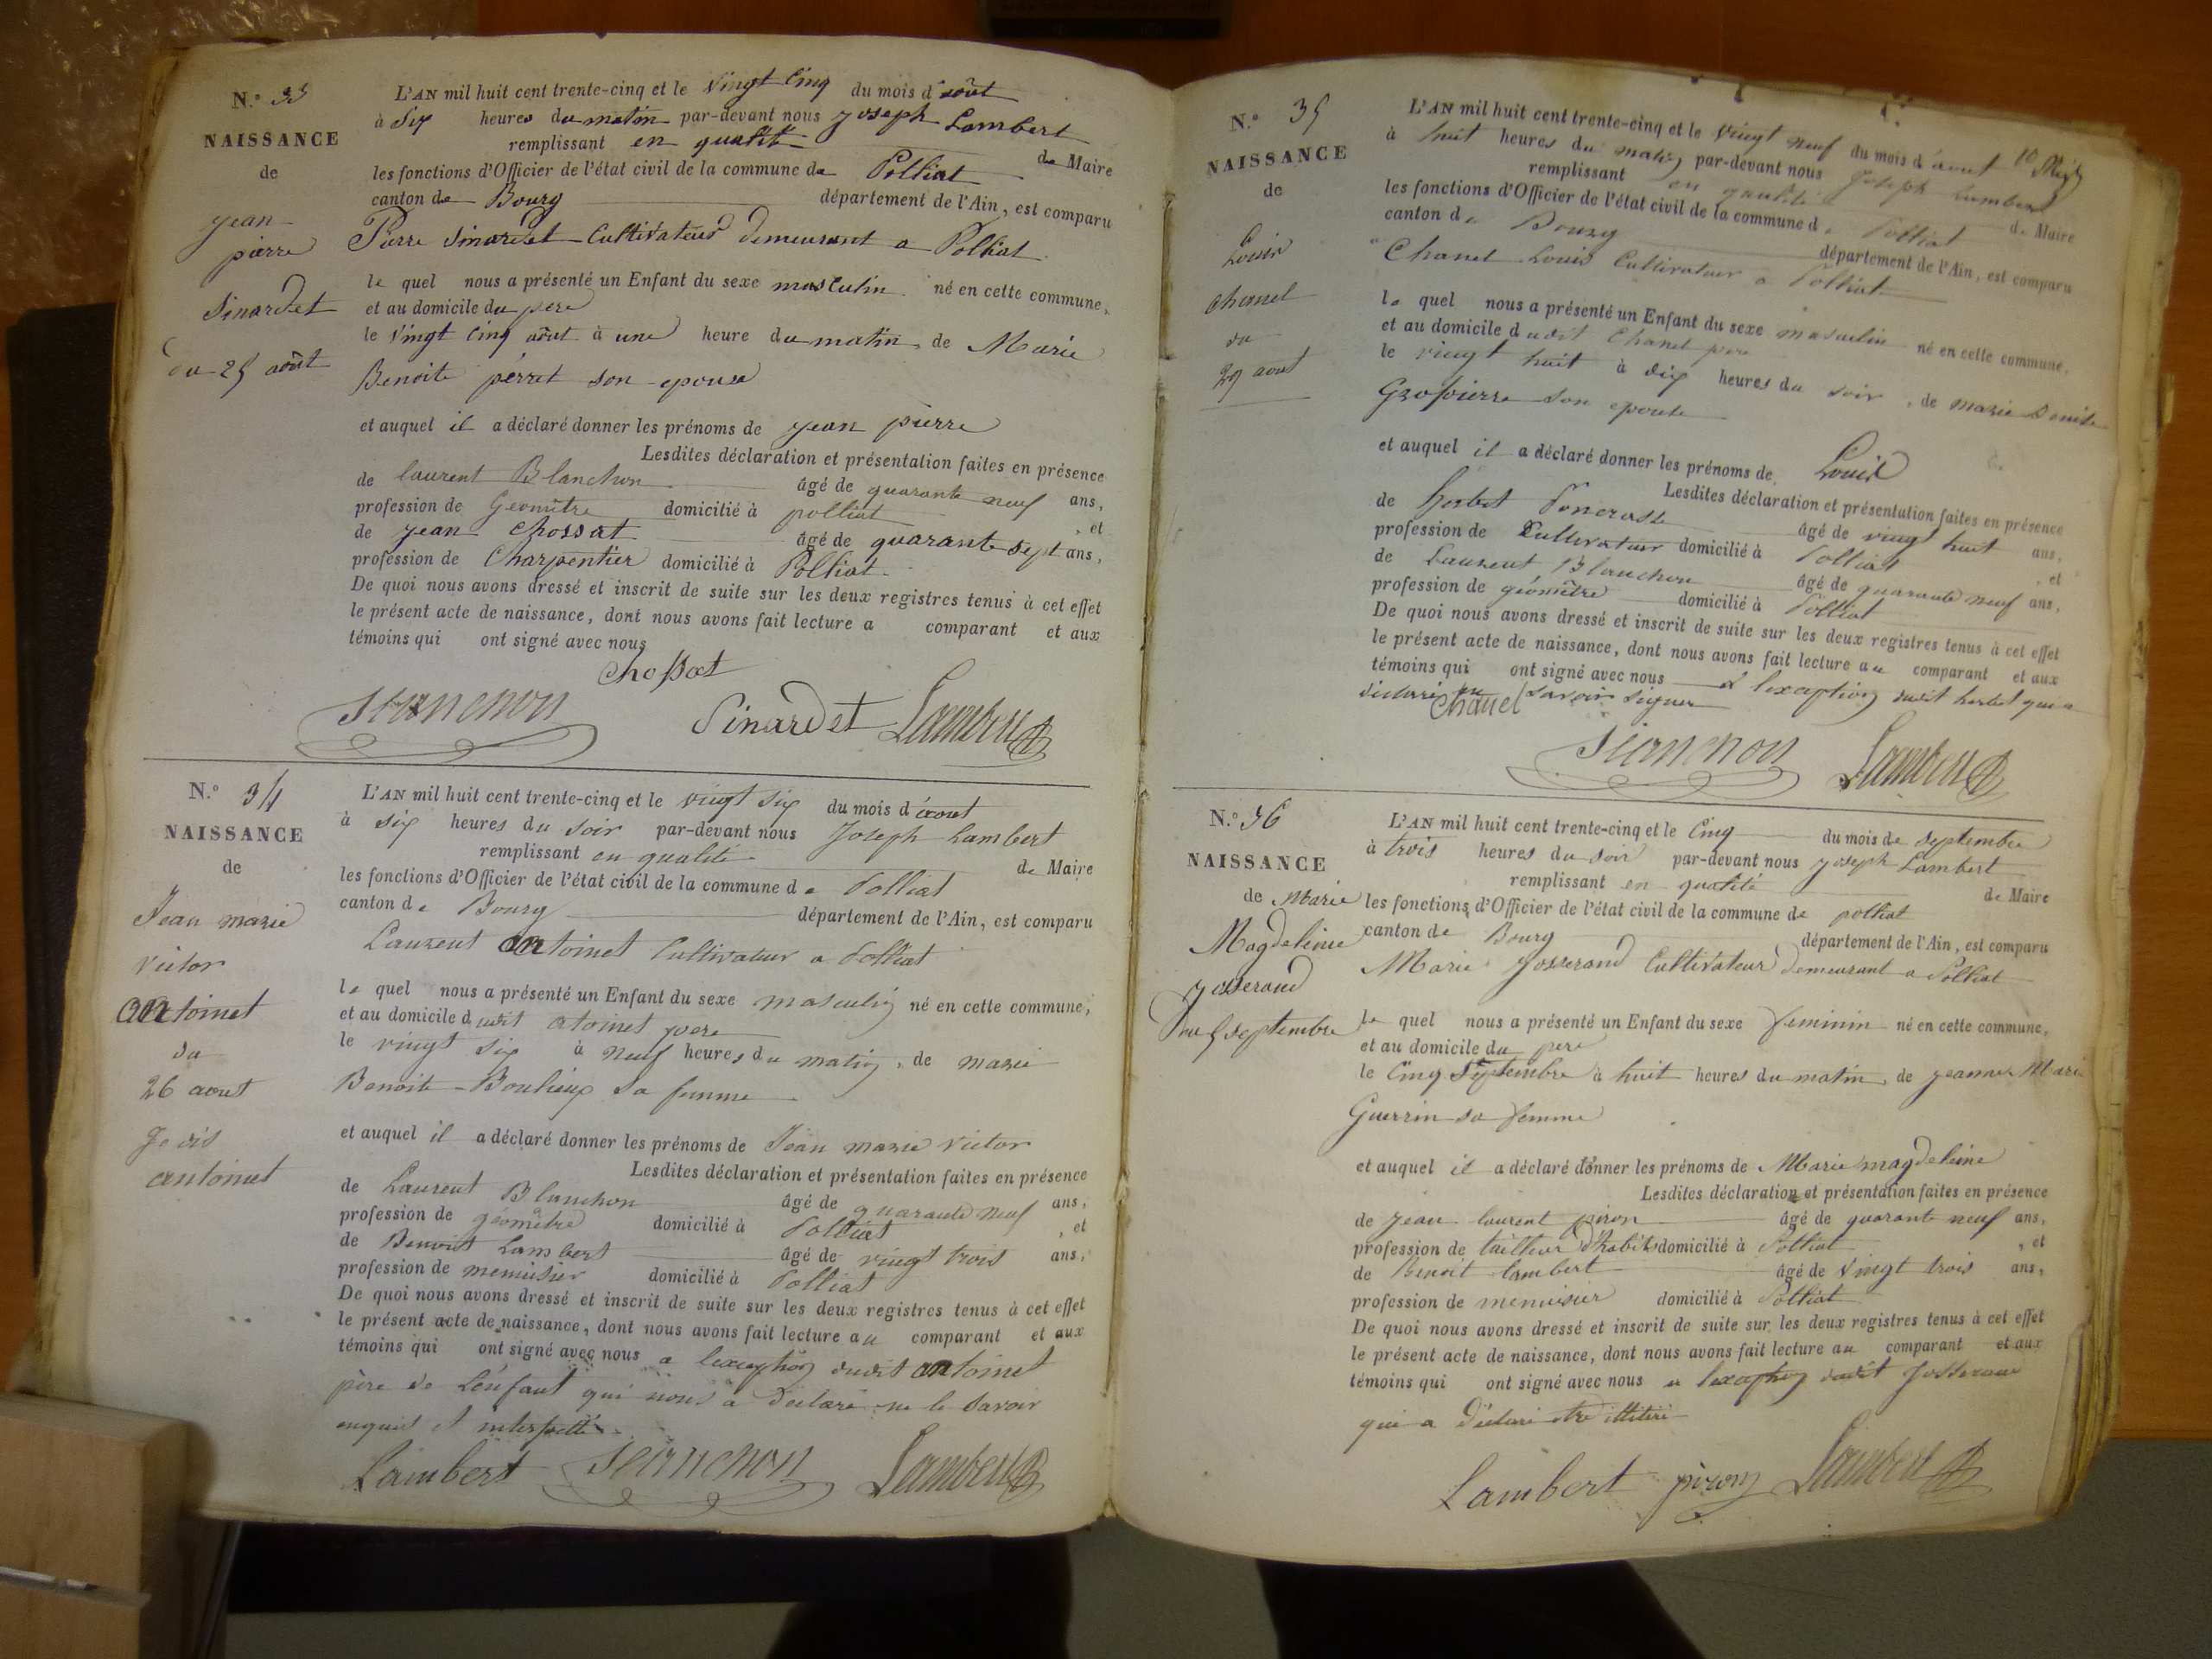 N.º 33
NAISSANCE
de
jean
pierre
Sinardet
du 25 août
L'AN mil huit cent trente-cinq et le vingt cinq du mois d'août
à six heures du matin par-devant nous joseph Lambert
remplissant en qualité de Maire
les fonctions d'Officier de l'état civil de la commune de Polliat
canton de Bourg département de l'Ain, est comparu
Pierre Sinardet Cultivateur demeurant a Polliat
le quel nous a présenté un Enfant du sexe masculin né en cette commune,
et au domicile du pere
le vingt cinq août à une heure du matin, de Marie
Benoite perret son epouse
et auquel il a déclaré donner les prénoms de jean pierre
Lesdites déclaration et présentation faites en présence
de laurent Blanchon âgé de quarante neuf ans,
profession de Geomètre domicilié à polliat, et
de jean Chossat âgé de quarante sept ans,
profession de Charpentier domicilié à Polliat.
De quoi nous avons dressé et inscrit de suite sur les deux registres tenus à cet effet
le présent acte de naissance, dont nous avons fait lecture a comparant et aux
témoins qui ont signé avec nous
Chossat
Blanchon Sinardet Lambert
N.º 34
NAISSANCE
de
Jean marie
victor
antoinet
du
26 aout
Je dis
antoinet
L'AN mil huit cent trente-cinq et le vingt six du mois d'aout
à six heures du soir par-devant nous Joseph Lambert
remplissant en qualité de Maire
les fonctions d'Officier de l'état civil de la commune de Polliat
canton de Bourg département de l'Ain, est comparu
Laurent antoinet Cultivateur a Polliat
le quel nous a présenté un Enfant du sexe masculin né en cette commune,
et au domicile dudit atoinet pere
le vingt six à neuf heures du matin, de marie
Benoite Bouhieux sa femme
et auquel il a déclaré donner les prénoms de Jean marie victor
Lesdites déclaration et présentation faites en présence
de Laurent Blanchon âgé de quarante neuf ans,
profession de géomètre domicilié à Polliat, et
de Benoit Lambert âgé de vingt trois ans,
profession de menuisier domicilié à Polliat
De quoi nous avons dressé et inscrit de suite sur les deux registres tenus à cet effet
le présent acte de naissance, dont nous avons fait lecture au comparant et aux
témoins qui ont signé avec nous a lexception dudit antoinet
père de l'enfant qui nous a déclaré ne le savoir
enquis et interpellé
Lambert Blanchon Lambert
N.º 35
NAISSANCE
de
Louis
chanel
du
29 aout
L'AN mil huit cent trente-cinq et le vingt neuf du mois d'aout
à huit heures du matin par-devant nous Joseph Lambert
remplissant en qualité de Maire
les fonctions d'Officier de l'état civil de la commune de Polliat
canton de Bourg département de l'Ain, est comparu
Chanel Louis Cultivateur a Polliat
le quel nous a présenté un Enfant du sexe masculin né en cette commune,
et au domicile dudit Chanel pere
le vingt huit à dix heures du soir, de marie Denise
Grospierre son epouse
et auquel il a déclaré donner les prénoms de Louis
Lesdites déclaration et présentation faites en présence
de herbet Poncrasse âgé de vingt huit ans,
profession de Cultivateur domicilié à Polliat, et
de Laurent Blanchon âgé de quarante neuf ans,
profession de géomètre domicilié à Polliat
De quoi nous avons dressé et inscrit de suite sur les deux registres tenus à cet effet
le présent acte de naissance, dont nous avons fait lecture au comparant et aux
témoins qui ont signé avec nous a lexception dudit herbet qui a
déclaré ne savoir signer
Chanel
Blanchon Lambert
N.º 36
NAISSANCE
de Marie
Magdeleine
josserand
du 5 septembre
L'AN mil huit cent trente-cinq et le Cinq du mois de septembre
à trois heures du soir par-devant nous joseph Lambert
remplissant en qualité de Maire
les fonctions d'Officier de l'état civil de la commune de polliat
canton de Bourg département de l'Ain, est comparu
Marie Josserand Cultivateur demeurant a Polliat
le quel nous a présenté un Enfant du sexe feminin né en cette commune,
et au domicile du pere
le Cinq Septembre à huit heures du matin, de jeanne Marie
Guerrin sa femme
et auquel il a déclaré donner les prénoms de Marie magdeleine
Lesdites déclaration et présentation faites en présence
de jean laurent piron âgé de quarante neuf ans,
profession de tailleur d'habits domicilié à Polliat, et
de Benoit lambert âgé de vingt trois ans,
profession de menuisier domicilié à Polliat
De quoi nous avons dressé et inscrit de suite sur les deux registres tenus à cet effet
le présent acte de naissance, dont nous avons fait lecture au comparant et aux
témoins qui ont signé avec nous a lexception dudit Josserand
qui a déclaré etre illitéré
Lambert piron Lambert